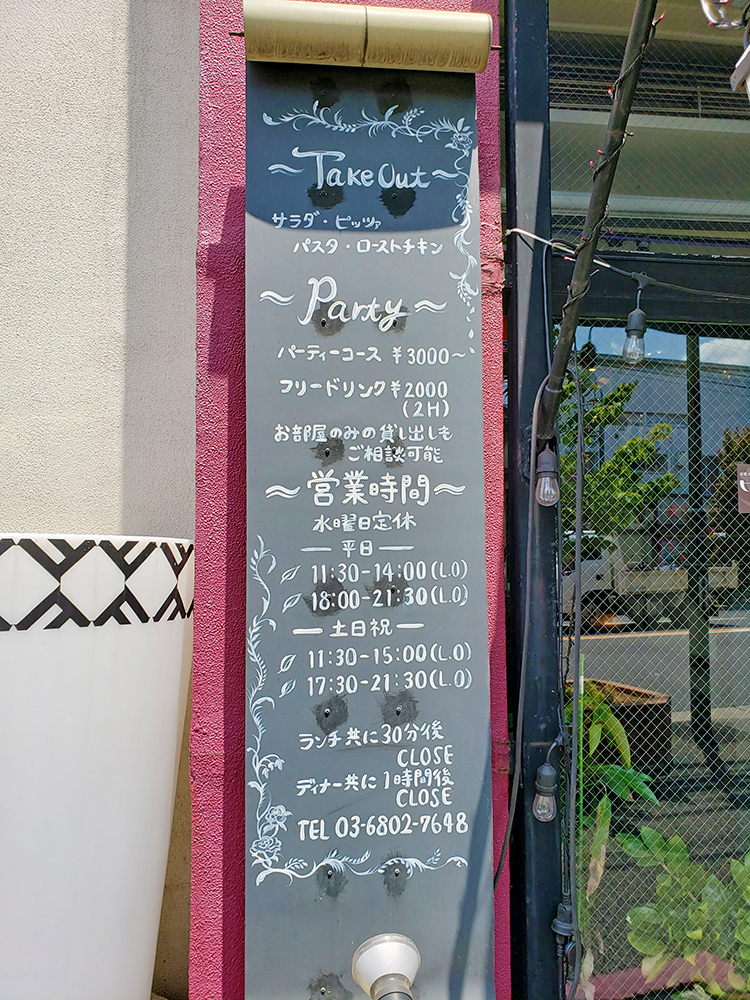 ~Take Out~
サラダ・ピッツァ
パスタ・ローストチキン
~Party~
パーティーコース ¥3000~
フリードリンク ¥2000
(2H)
お部屋のみの貸し出しも
ご相談可能
~営業時間~
水曜日定休
—平日—
11:30-14:00(L.O)
18:00-21:30(L.O)
—土日祝—
11:30-15:00(L.O)
17:30-21:30(L.O)
ランチ共に30分後
CLOSE
ディナー共に1時間後
CLOSE
TEL 03-6802-7648